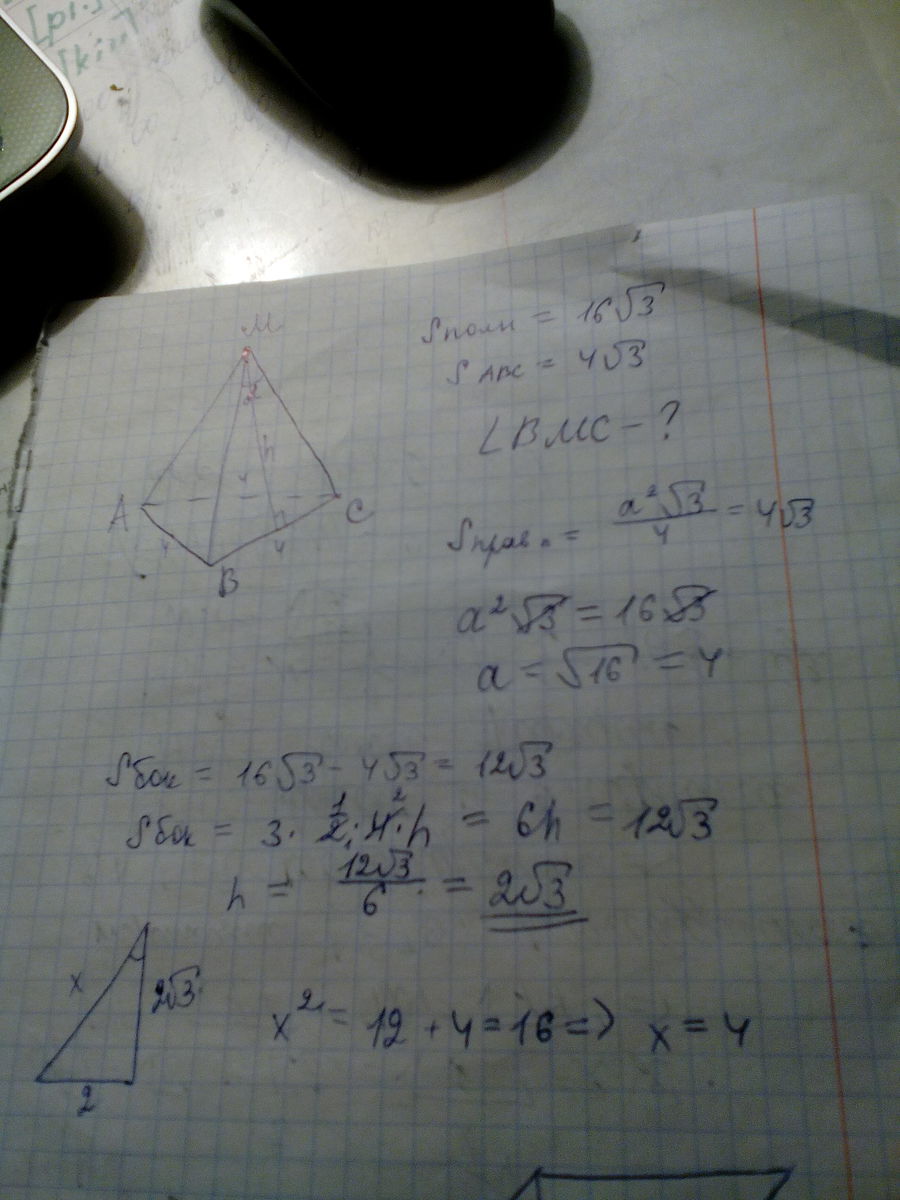 [pl.]
M
Sполн = 16√3
S ABC = 4√3
∠BMC - ?
α
h
4
A
C
4
4
B
Sправ. = a²√3/4 = 4√3
a²√3 = 16√3
a = √16 = 4
Sбок = 16√3 - 4√3 = 12√3
Sбок = 3 · 1/2 · 4 · h = 6h = 12√3
2
h = 12√3/6 = 2√3
x
2√3
2
x² = 12 + 4 = 16 => x = 4